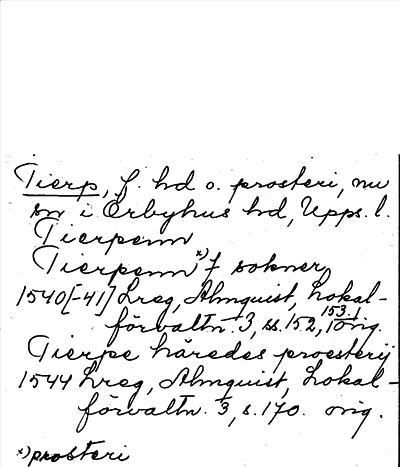 Tierp, f. hd o. prosteri, nu
sn i Örbyhus hd, Upps. l.
Tierpenn
Tierpenn x) 7 sokner
1540[-41] Lreg, Almquist, Lokal-
förvaltn. 3, ss. 152, 153. orig.
Tierpe häredes proesterij
1544 Lreg, Almquist, Lokal-
förvaltn. 3, s. 170. orig.
x) prosteri